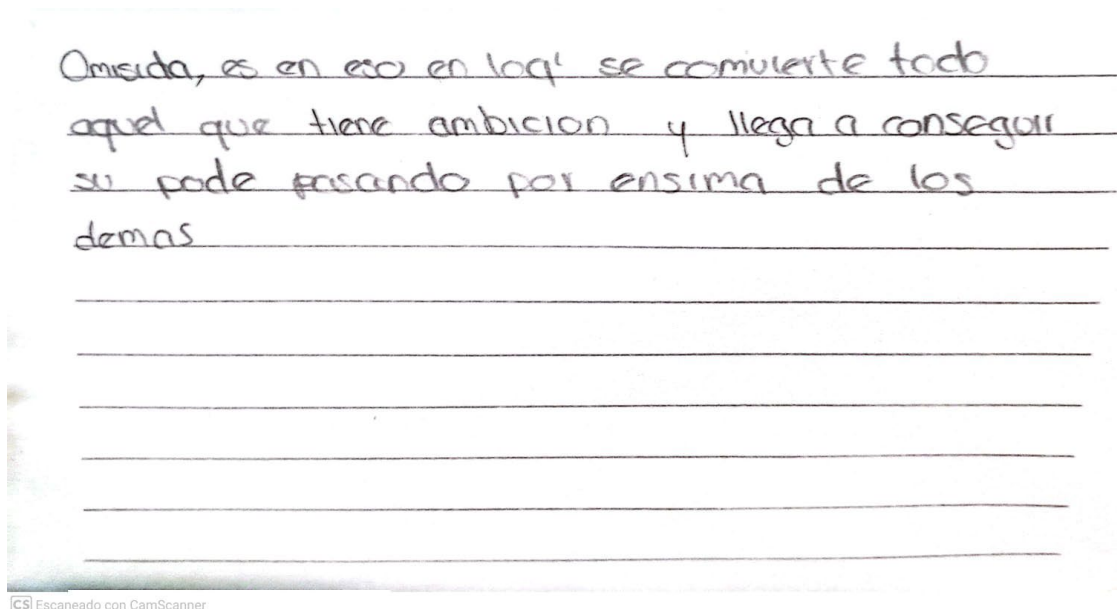 Omisida, es en eso en loq' se comvierte todo
aquel que tiene ambicion y llega a conseguir
su pode pasando por ensima de los
demas
CS Escaneado con CamScanner